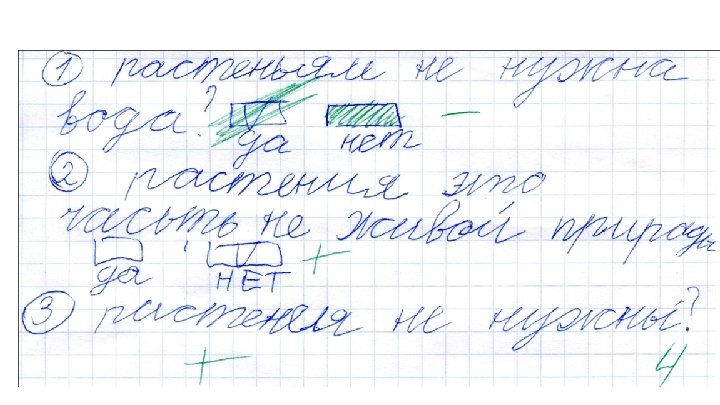 ① растеньям не нужна
вода? —
да нет
② растения это
часьть не живой природы
да НЕТ +
③ растенея не нужны?
+ 4